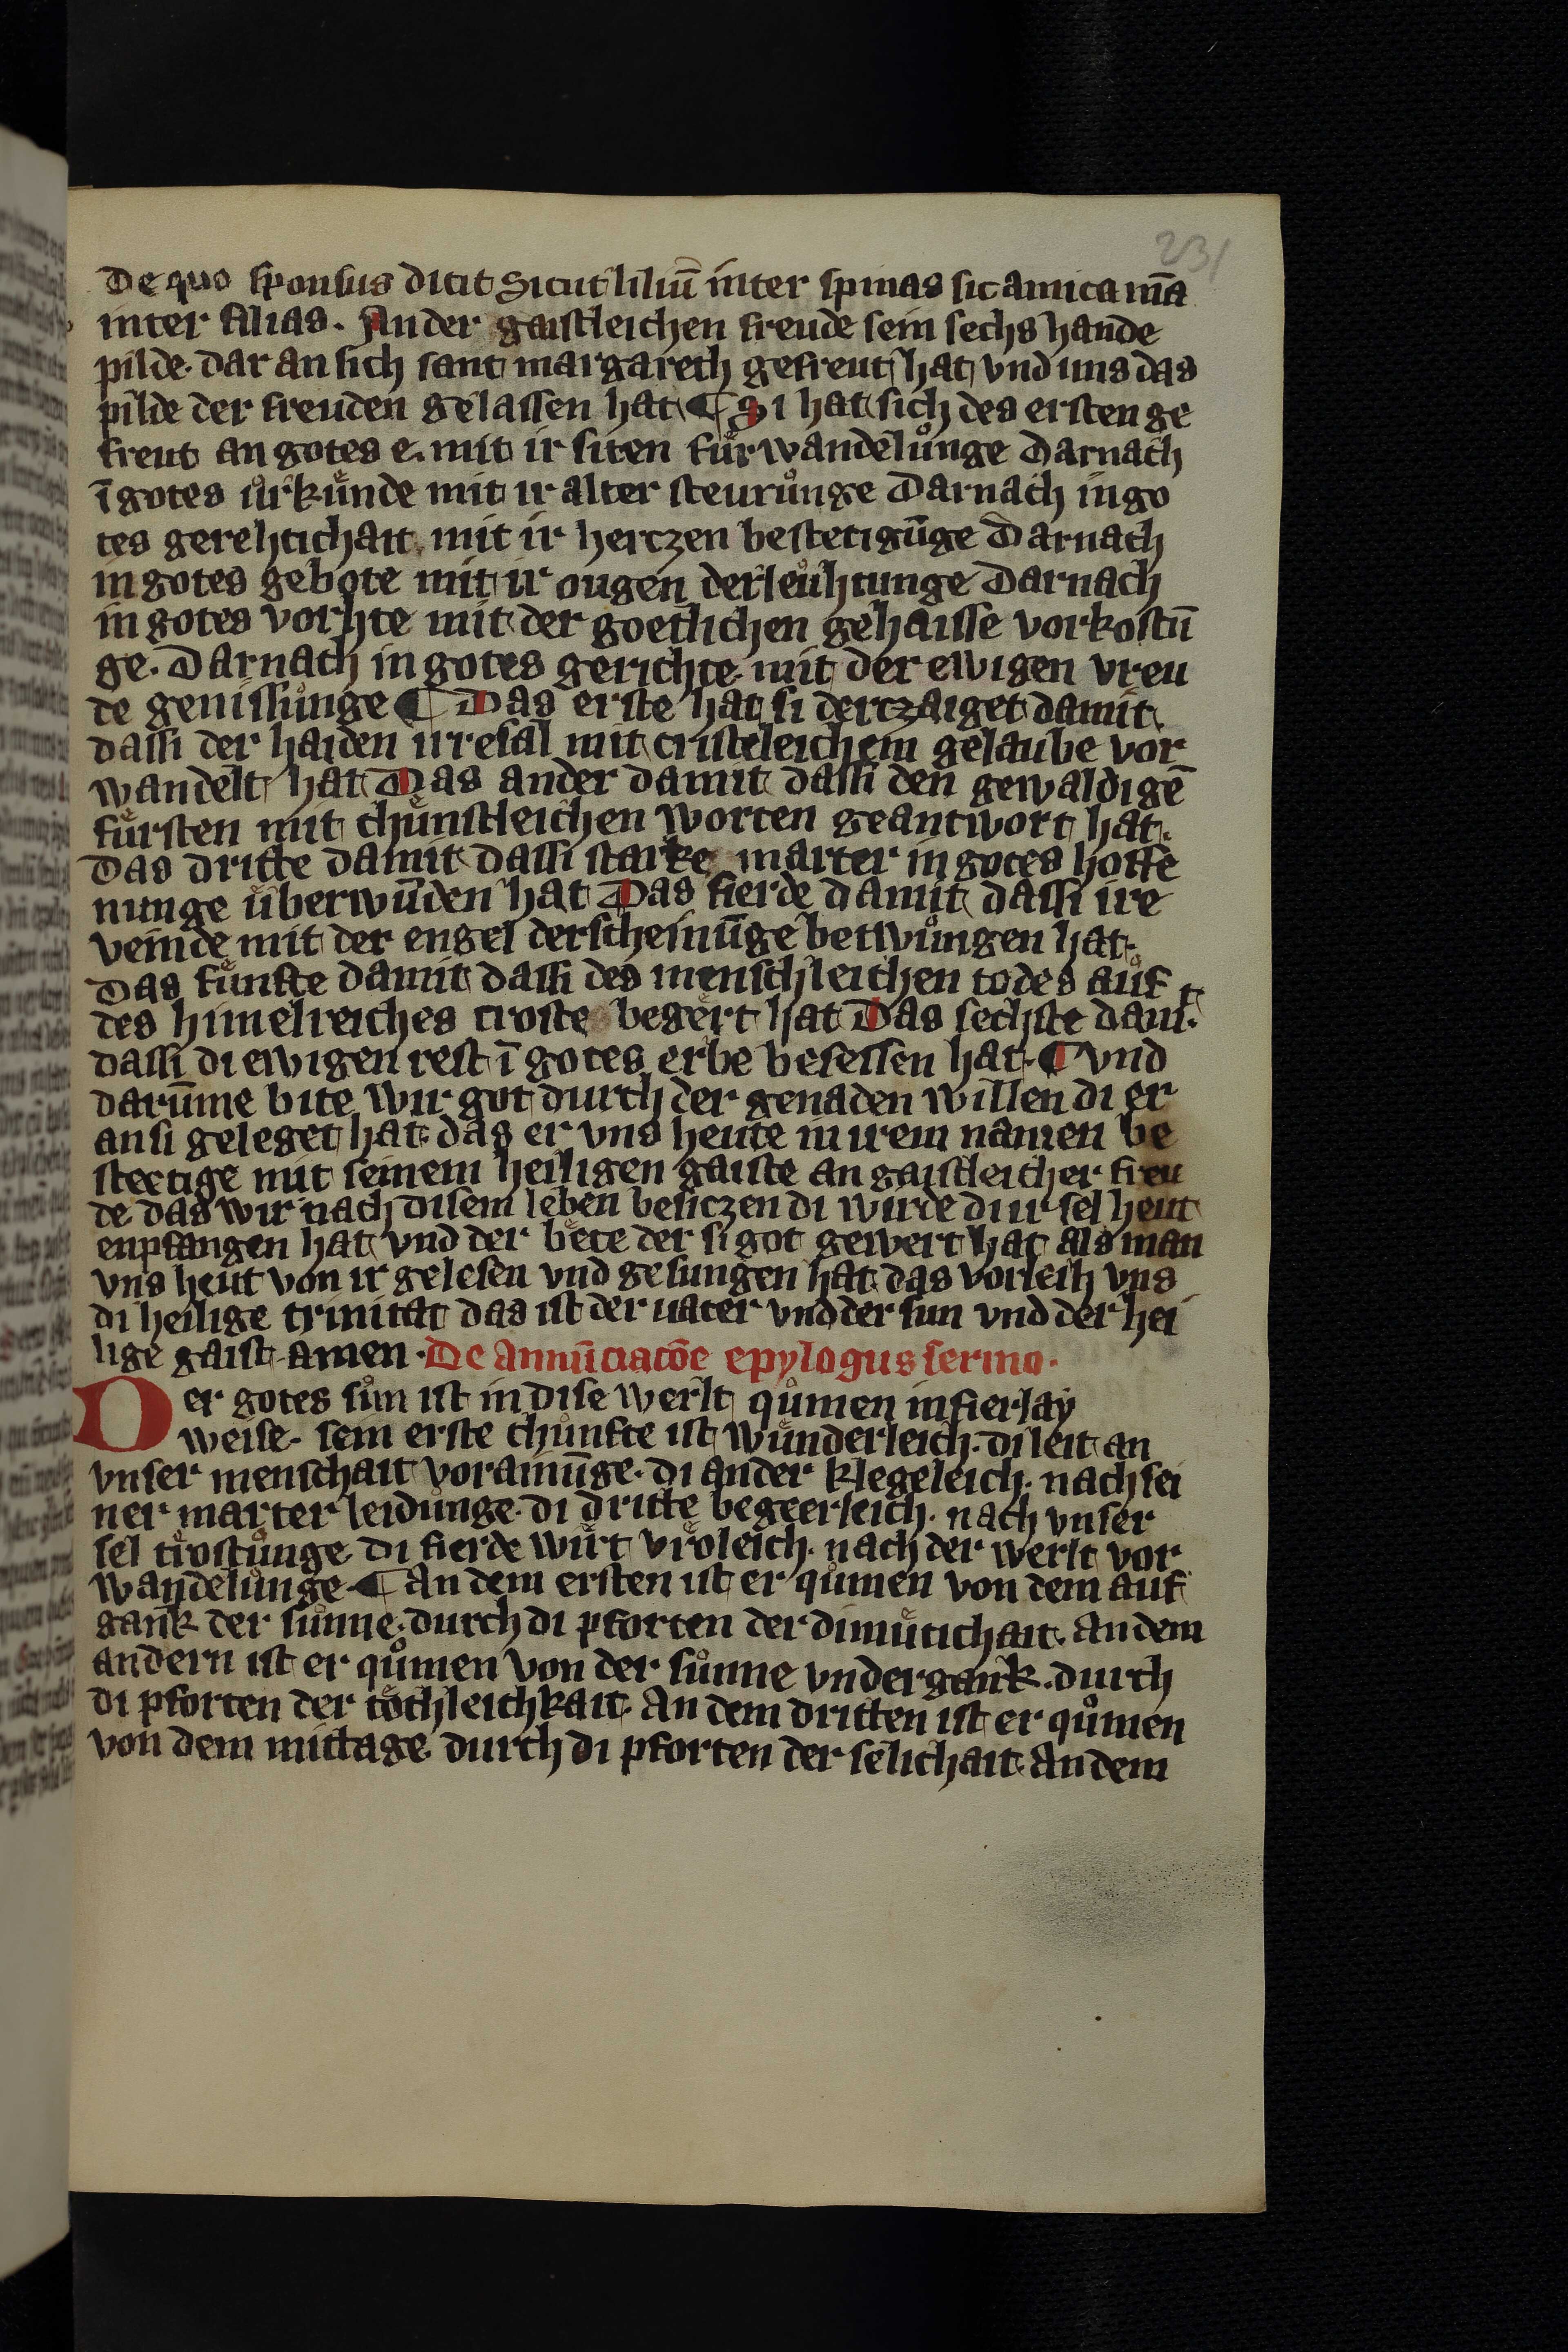 231
De quo sponsus dicit Sicut liliū inter spinas sic amica m̄a
inter filias. An der gaistleichen freude sein sechs hande
pilde. dar an sich sant margareth gefreut hat vnd uns das
pilde der freuden gelassen hat ¶ Si hat sich des ersten ge
freut an gotes e. mit ir siten fuͤrwandeluͦnge Darnach
ī gotes uͦrkuͤnde mit ir alter steuruͦnge Darnach in go
tes gerehtichait. mit ir hertzen bestetigūge Darnach
in gotes gebote mit ir ougen derleuͤhtunge Darnach
in gotes vorhte mit der goetlichen gehaisse vorkostū
ge. Darnach in gotes gerichte. mit der ewigen vreu
de genissuͦnge ¶ Das erste hat si dertzaiget damit
dassi der haiden irresal mit cristeleichem gelaube vor
wandelt hat Das ander damit dassi den gewaldigē
fuͤrsten mit chuͤnstleichen worten geantwort hat.
Das dritte damit dassi starke marter in gotes hoffe
nunge uͤberwūden hat Das fierde damit dassi ire
veinde mit der engel derscheinūge betwuͦngen hat.
Das fuͤnfte damit dassi des menschleichen todes auͦf
des himelreiches troste begeͤrt hat Das sechste dami
dassi di ewigen rest ī gotes erbe besessen hat. ¶ vnd
darūme bite wir got durch der genaden willen di er
an si geleget hat. das er vns heute in irem namen be
steetige mit seinem heiligen gaiste an gaistleicher freu
de das wir nach disem leben besiczen di wirde di ir sel heut
enpfangen hat vnd der beͤte der si got gewert hat als man
vns heut von ir gelesen vnd gesungen hat. das vorleih vns
di heilige trinitat das ist der uater vnd der sun vnd der hei
lige gaist amen. De annūciacōe epylogus sermo.
Der gotes suͦn ist in dise werlt quͦmen in fierlay
weise. sein erste chuͦnfte ist wuͤnderleich. di leit an
vnser menschait vorainūge. di ander klegeleich. nach sei
ner marter leiduͦnge. di dritte begeerleich. nach vnser
sel troͤstuͦnge di fierde wuͤrt vroͤleich. nach der werlt vor
wandeluͦnge. ¶ An dem ersten ist er quͦmen von dem auf
gank der suͦnne. durch di pforten der dimuͤtichait. An dem
andern ist er quͦmen von der suͦnne vndergank. durch
di pforten der toͤchleichkait. An dem dritten ist er quͦmen
von dem mittage durch di pforten der selichait. An dem